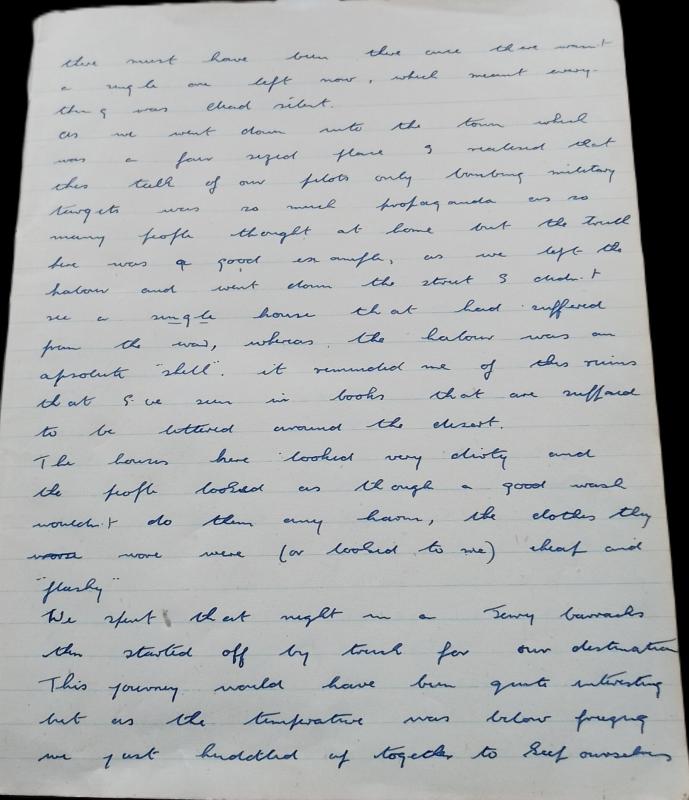 there must have been there once there wasn't
a single one left now, which meant every-
thing was dead silent.
as we went down into the town which
was a fair sized place I realised that
this talk of our pilots only bombing military
targets was so much propaganda as so
many people thought at home but the truth
here was a good example, as we left the
habour and went down the street I didn't
see a single house that had suffered
from the war, whereas the habour was an
apsolute "shell". it reminded me of the ruins
that I've seen in books that are suppased
to be littered around the desert.
The houses here looked very dirty and
the people looked as though a good wash
wouldn't do them any harm, the clothes they
wore were (or looked to me) cheap and
"flashy"
We spent that night in a barracks
then started off by truck for our destination
This journey would have been quite interesting
but as the temperature was below freezing
we just huddled up together to keep ourselves